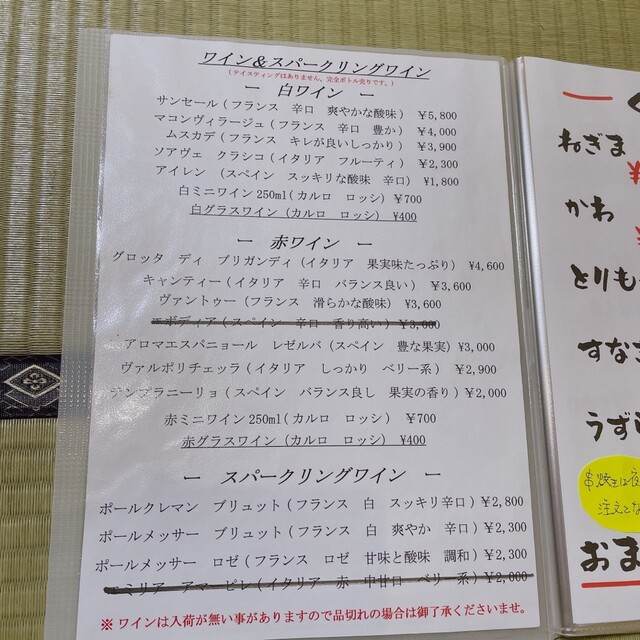 ワイン＆スパークリングワイン
(テイスティングはありません、完全ボトル売りです。)
ー 白ワイン ー
サンセール(フランス 辛口 爽やかな酸味) ￥5,800
マコンヴィラージュ(フランス 辛口 豊か) ￥4,000
ムスカデ(フランス キレが良いしっかり) ￥3,900
ソアヴェ クラシコ(イタリア フルーティ) ￥2,300
アイレン (スペイン スッキリな酸味 辛口) ¥1,800
白ミニワイン250ml(カルロ ロッシ) ￥700
白グラスワイン(カルロ ロッシ) ¥400
ー 赤ワイン ー
グロッタ ディ ブリガンディ(イタリア 果実味たっぷり) ¥4,600
キャンティー(イタリア 辛口 バランス良い) ￥3,600
ヴァントゥー(フランス 滑らかな酸味) ¥3,600
エボディア(スペイン 辛口 香り高い) ￥3,000
アロマエスパニョール レゼルバ(スペイン 豊な果実) ¥3,000
ヴァルポリチェッラ(イタリア しっかり ベリー系) ￥2,900
テンプラニーリョ(スペイン バランス良し 果実の香り) ￥2,000
赤ミニワイン250ml(カルロ ロッシ) ￥700
赤グラスワイン(カルロ ロッシ) ¥400
ー スパークリングワイン ー
ポールクレマン ブリュット(フランス 白 スッキリ辛口) ￥2,800
ポールメッサー ブリュット(フランス 白 爽やか 辛口) ￥2,300
ポールメッサー ロゼ(フランス ロゼ 甘味と酸味 調和) ￥2,300
エミリア アマービレ(イタリア 赤 中甘口 ベリー系) ￥2,000
※ワインは入荷が無い事がありますので品切れの場合は御了承くださいませ。
ねぎま
かわ
とりも
すなぎ
うずら
串焼きは夜
注文でな
おま